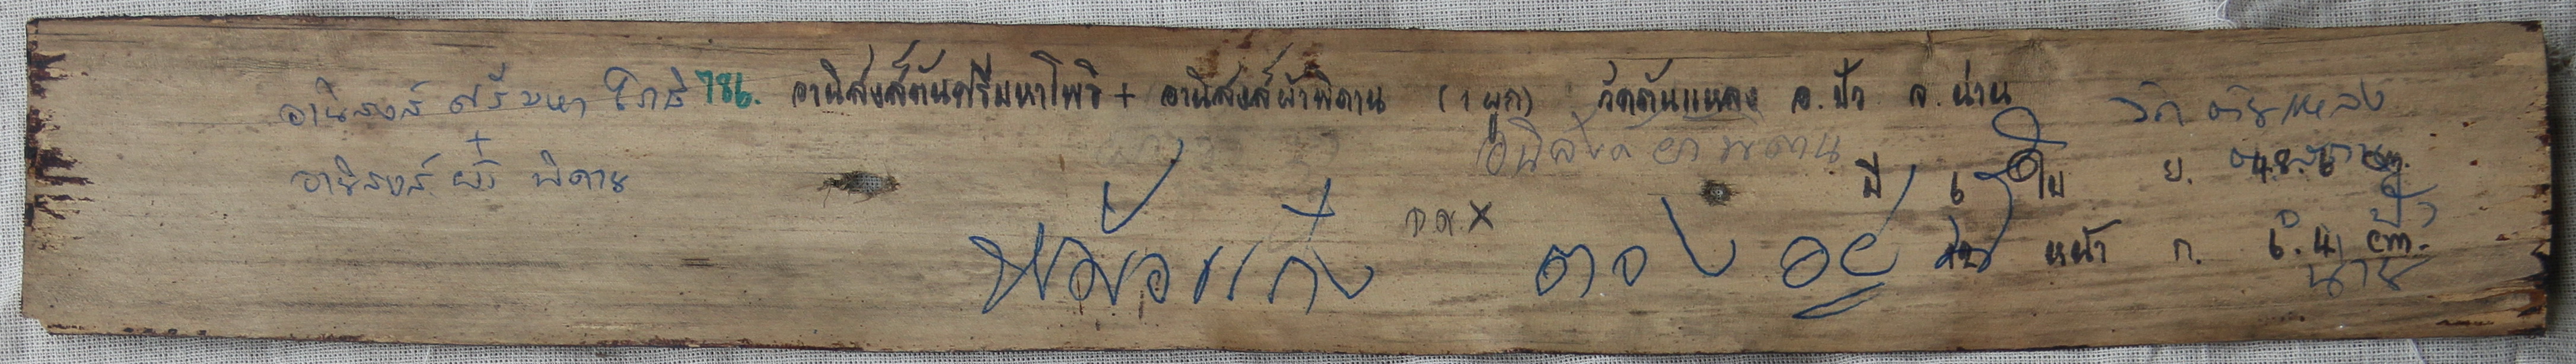 อานิสงส์ ศรีมหา โภธิ 786. อานิสงส์ต้นศรีมหาโพธิ + อานิสงส์ผ้าพิดาน (1 ผูก) วัดต้นแหลง อ. ปัว จ. น่าน วัด ต้นแหลง
+
อานิสงส์ ผ้า พิดาน
มี ใบ ย. 48.6 cm.
หม้อแกง ก.ต.X ตอง อยู่ หน้า ก. cm.
ปัว
น่าน